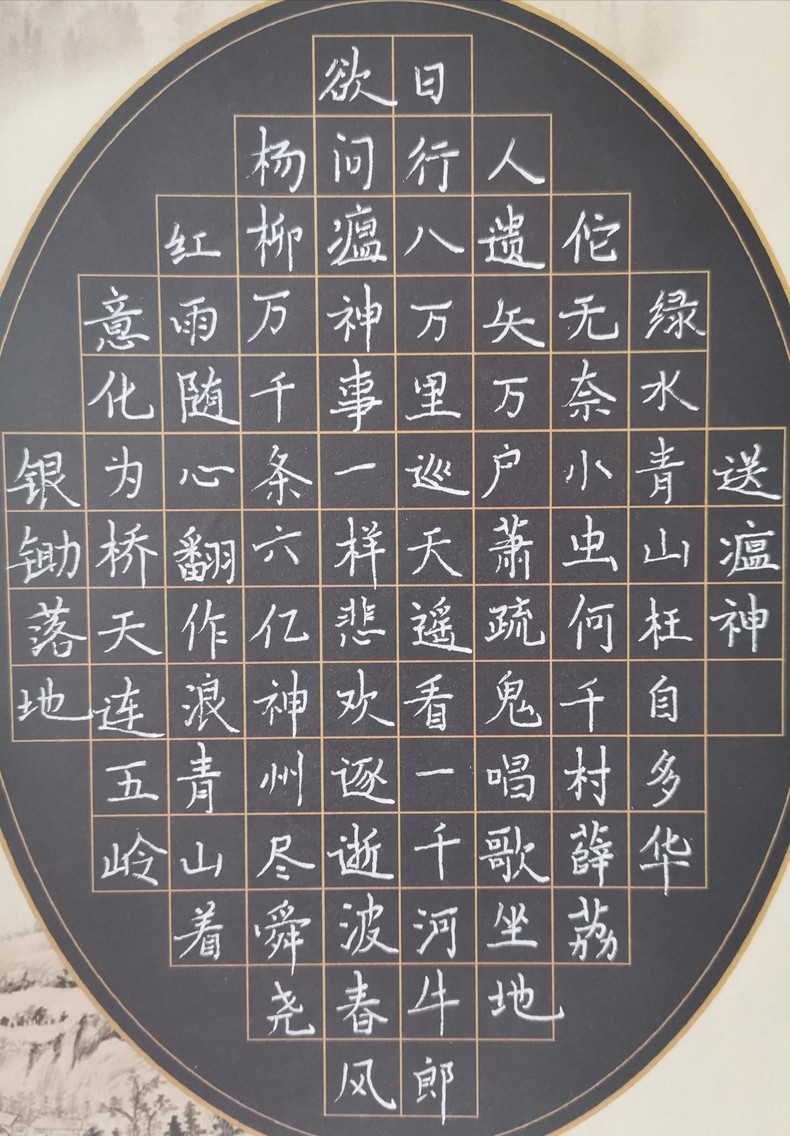 送瘟神
绿水青山枉自多华
佗无奈小虫何千村薜荔
人遗矢万户萧疏鬼唱歌坐地
日行八万里巡天遥看一千河牛郎
欲问瘟神事一样悲欢逐逝波春风
杨柳万千条六亿神州尽舜尧
红雨随心翻作浪青山着
意化为桥天连五岭
银锄落地